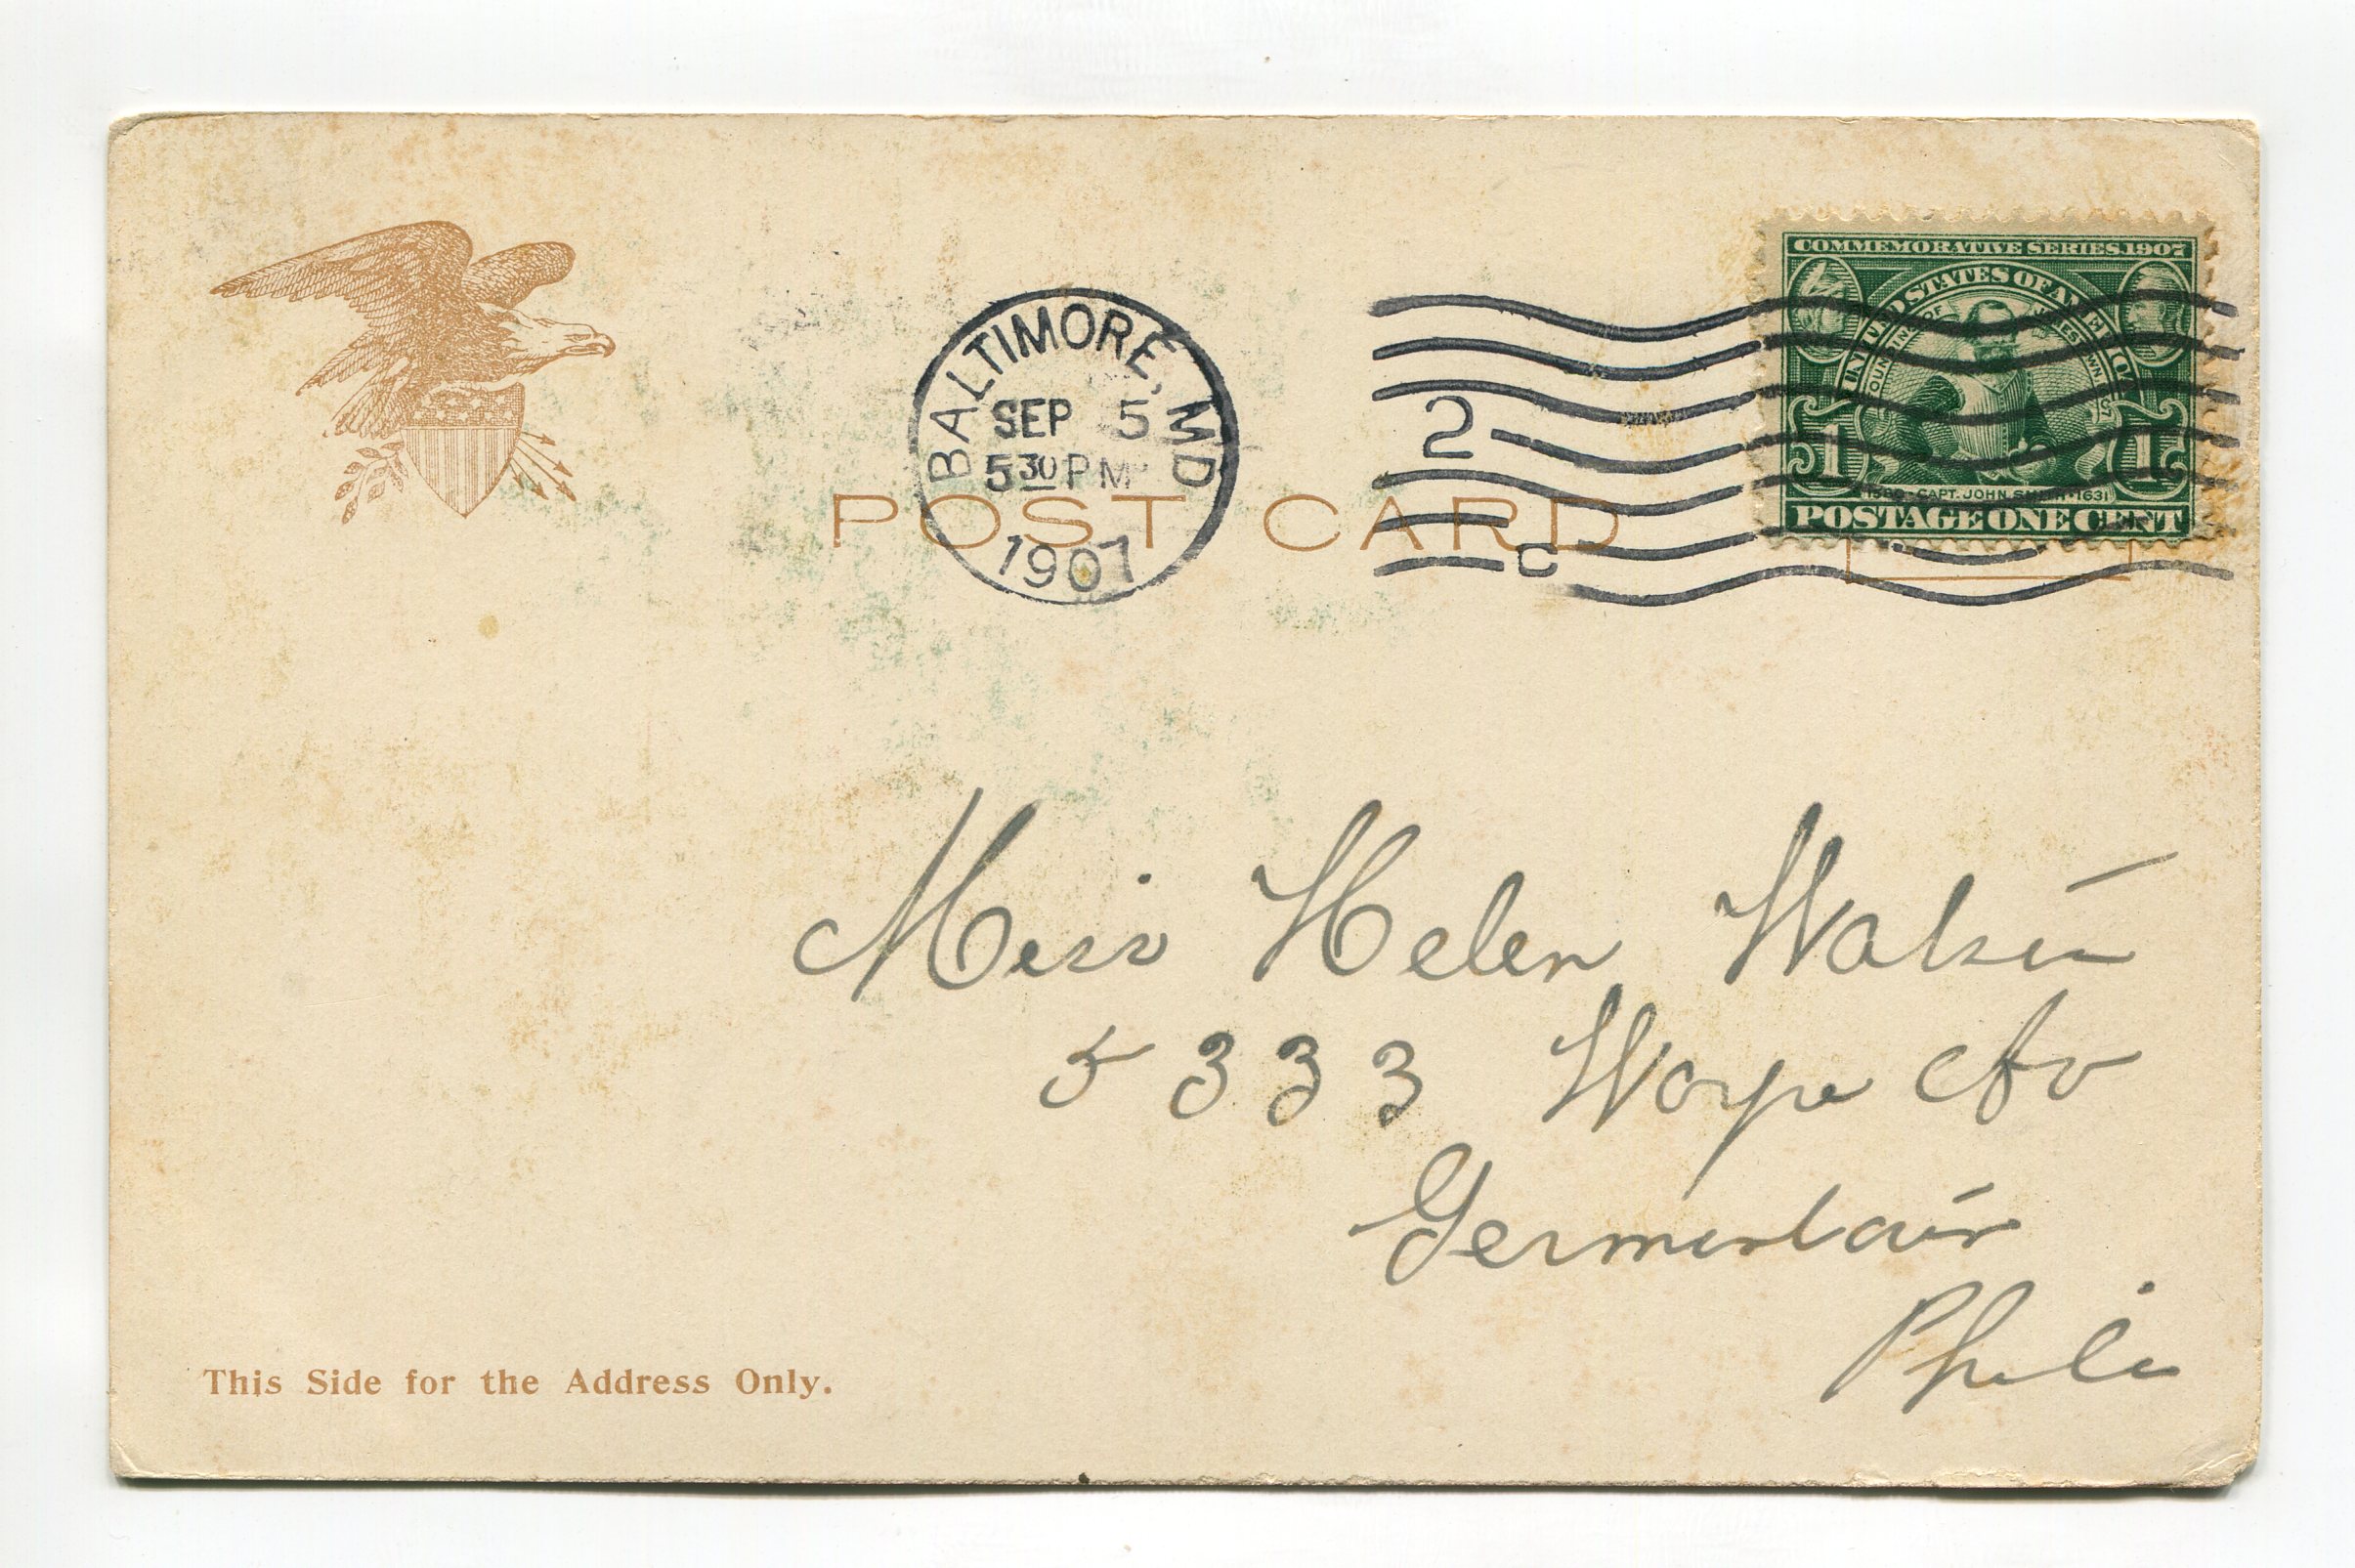 COMMEMORATIVE SERIES, 1907
UNITED STATES OF AMERICA
FOUNDING OF JAMESTOWN
1 1
1580 · CAPT. JOHN SMITH · 1631
POSTAGE ONE CENT
BALTIMORE, MD
SEP 5
5 30 P M
1907
2
C
POST CARD
Miss Helen
5333 Av
Phila
This Side for the Address Only.